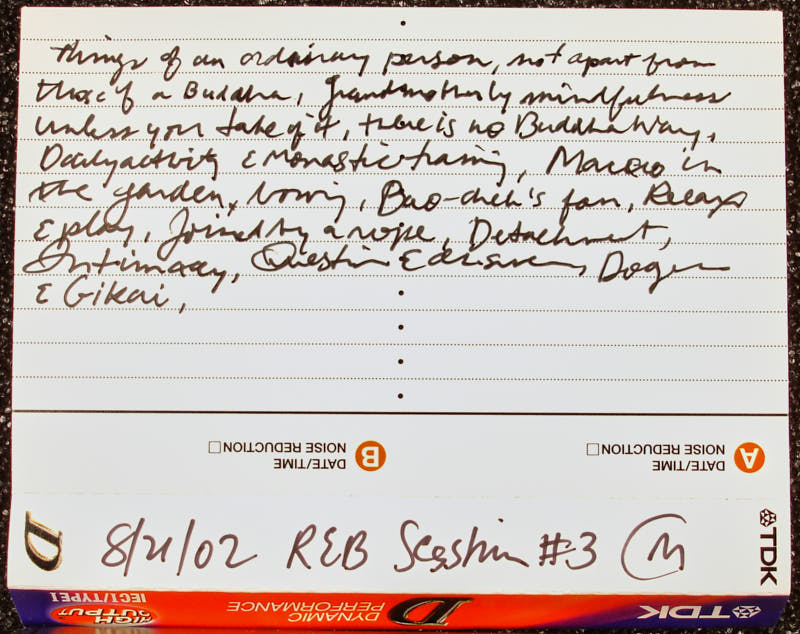 things of an ordinary person, not apart from
those of a Buddha, Grandmotherly mindfulness
unless you take of it, there is no Buddha Way,
Daily activity & Monastic training, in
the garden, bowing, Bao-che's fan, Relaxs
& play, Joined by a rope, Detachment,
Intimacy, Question & Dogen
& Gikai,
B
DATE/TIME
NOISE REDUCTION
A
DATE/TIME
NOISE REDUCTION
D
8/21/02 REB Sesshin #3 M
TDK
HIGH OUTPUT
IEC I/TYPE I
DYNAMIC
PERFORMANCE
D
TDK